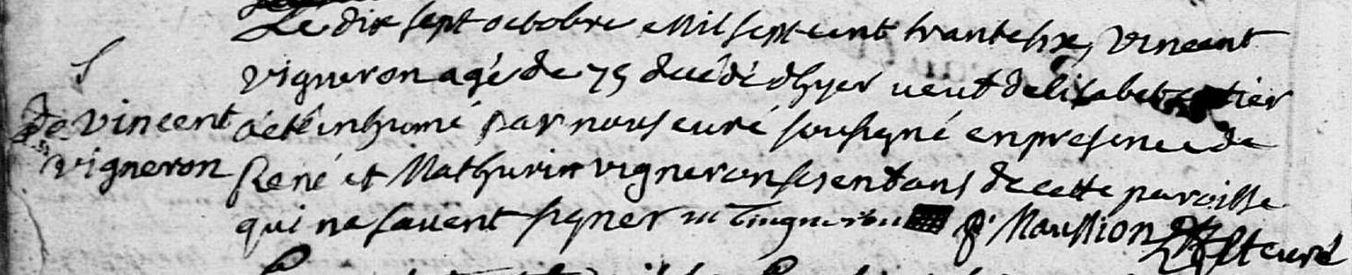 S
De vincent
vigneron
Le dix sept octobre mil sept cent trante six, vincent
vigneron agé de 75 décédé d'hyer veuf delisabet tier
a été inhumé par nous curé sousigné en presence de
René et Mathurin vigneron ses enfans de cette paroisse
qui ne savent signer m vigneron p. Maussion ptre curé